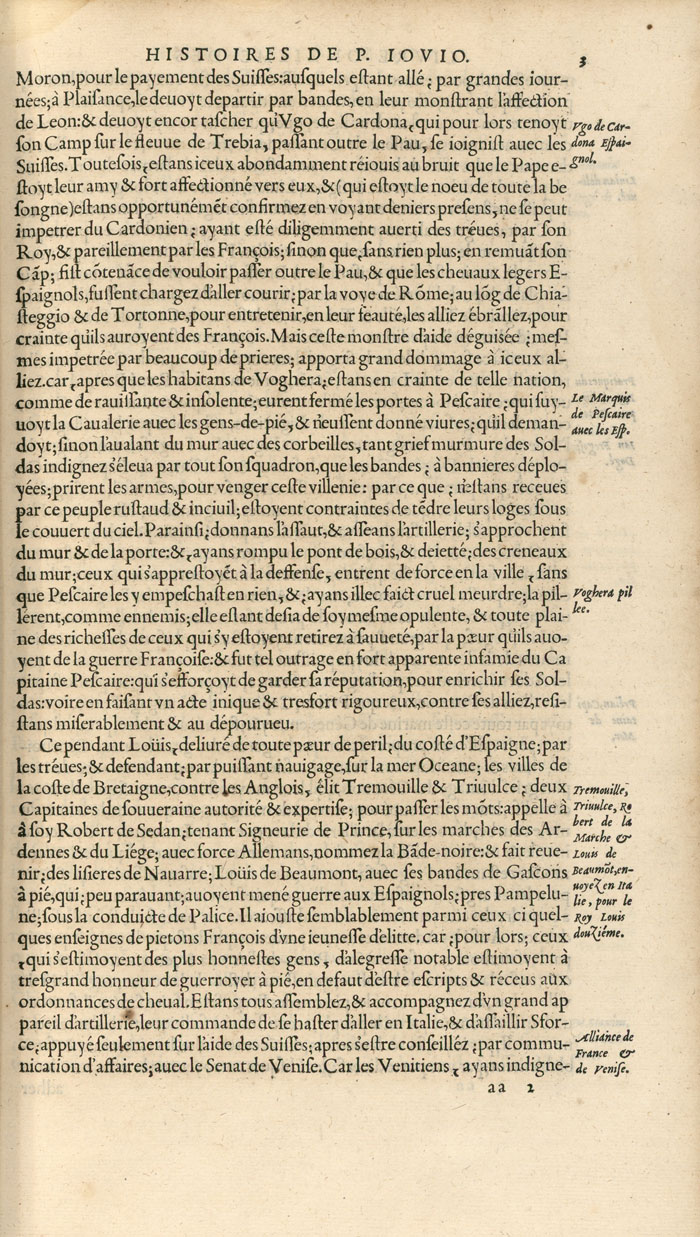 HISTOIRES DE P. IOVIO.
3
Moron,pour le payement des Suiſſes:auſquels eſtant allé; par grandes iour-
nées;à Plaiſance,le deuoyt departir par bandes,en leur monſtrant l'affection
de Leon:& deuoyt encor taſcher qu'Vgo de Cardona,qui pour lors tenoyt
ſon Camp ſur le fleuue de Trebia, paſſant outre le Pau, ſe ioigniſt auec les
Suiſſes. Toutefois,eſtans iceux abondamment réiouis au bruit que le Pape e-
ſtoyt leur amy & fort affectionné vers eux,&(qui eſtoyt le noeu de toute la be
ſongne)eſtans opportunémẽt confirmez en voyant deniers preſens, ne ſe peut
impetrer du Cardonien; ayant eſté diligemment auerti des tréues, par ſon
Roy,& pareillement par les François;ſinon que,ſans rien plus; en remuãt ſon
Cãp; fiſt cõtenãce de vouloir paſſer outre le Pau,& que les cheuaux legers E-
ſpaignols,fuſſent chargez d'aller courir; par la voye de Rõme; au lõg de Chia-
ſteggio & de Tortonne,pour entretenir,en leur feauté,les alliez ébrãllez,pour
crainte qu'ils auroyent des François. Mais ceſte monſtre d'aide déguisée ; meſ-
mes impetrée par beaucoup de prieres; apporta grand dommage à iceux al-
liez.car,apres que les habitans de Voghera;eſtans en crainte de telle nation,
comme de rauiſſante & inſolente;eurent fermé les portes à Peſcaire ;qui ſuy-
uoyt la Caualerie auec les gens-de-pié, & n'euſſent donné viures; qu'il deman-
doyt; ſinon l'aualant du mur auec des corbeilles, tant grief murmure des Sol-
das indignez s'éleua par tout ſon ſquadron,que les bandes ; à bannieres déplo-
yées; prirent les armes,pour venger ceſte villenie: par ce que ; n'eſtans receues
par ce peuple ruſtaud & inciuil; eſtoyent contraintes de tẽdre leurs loges ſous
le couuert du ciel. Parainſi;donnans l'aſſaut,& aſſeans l'artillerie; s'approchent
du mur & de la porte:&,ayans rompu le pont de bois,& deietté;des creneaux
du mur;ceux qui s'appreſtoyẽt à la deffenſe, entrent de force en la ville, ſans
que Peſcaire les y empeſchaſt en rien, &;ayans illec faict cruel meurdre;la pil-
lérent,comme ennemis;elle eſtant deſia de ſoymeſme opulente, & toute plai-
ne des richeſſes de ceux qui s'y eſtoyent retirez à ſauueté,par la pœur qu'ils auo-
yent de la guerre Françoiſe:& fut tel outrage en fort apparente infamie du Ca
pitaine Peſcaire:qui s'efforçoyt de garder ſa réputation,pour enrichir ſes Sol-
das:voire en faiſant vn acte inique & treſfort rigoureux,contre ſes alliez,reſi-
ſtans miſerablement & au dépourueu.
Ce pendant Loüis,deliuré de toute pœur de peril;du coſté d'Eſpaigne;par
les tréues; & defendant; par puiſſant nauigage,ſur la mer Oceane; les villes de
la coſte de Bretaigne,contre les Anglois, élit Tremouille & Triuulce ; deux
Capitaines de ſouueraine autorité & expertiſe; pour paſſer les mõts:appelle à
à ſoy Robert de Sedan;tenant Signeurie de Prince, ſur les marches des Ar-
dennes & du Liége; auec force Allemans,nommez la Bãde-noire:& fait reue-
nir;des liſieres de Nauarre; Loüis de Beaumont, auec ſes bandes de Gaſcons
à pié,qui; peu parauant;auoyent mené guerre aux Eſpaignols; pres Pampelu-
ne; ſous la conduicte de Palice. Il aiouſte ſemblablement parmi ceux ci quel-
ques enſeignes de pietons François d'vne ieuneſſe d'elitte. car ;pour lors; ceux
,qui s'eſtimoyent des plus honneſtes gens, d'alegreſſe notable eſtimoyent à
treſgrand honneur de guerroyer à pié,en defaut d'eſtre eſcripts & réceus aux
ordonnances de cheual. Eſtans tous aſſemblez,& accompagnez d'vn grand ap
pareil d'artillerie,leur commande de ſe haſter d'aller en Italie,& d'aſſaillir Sfor-
ce;appuyé ſeulement ſur l'aide des Suiſſes; apres s'eſtre conſeilléz ;par commu-
nication d'affaires;auec le Senat de Veniſe. Car les Venitiens, ayans indigne-
aa 2
Vgo de Car-
dona Eſpai-
gnol.
Le Marquis
de Peſcaire
auec les Eſp.
Voghera pil
lee.
Tremouille,
Triuulce, Ro
bert de la
Marche &
Louis de
Beaumõt,en-
uoyez en Ita
lie, pour le
Roy Louis
douziéme.
Alliance de
France &
de Veniſe.